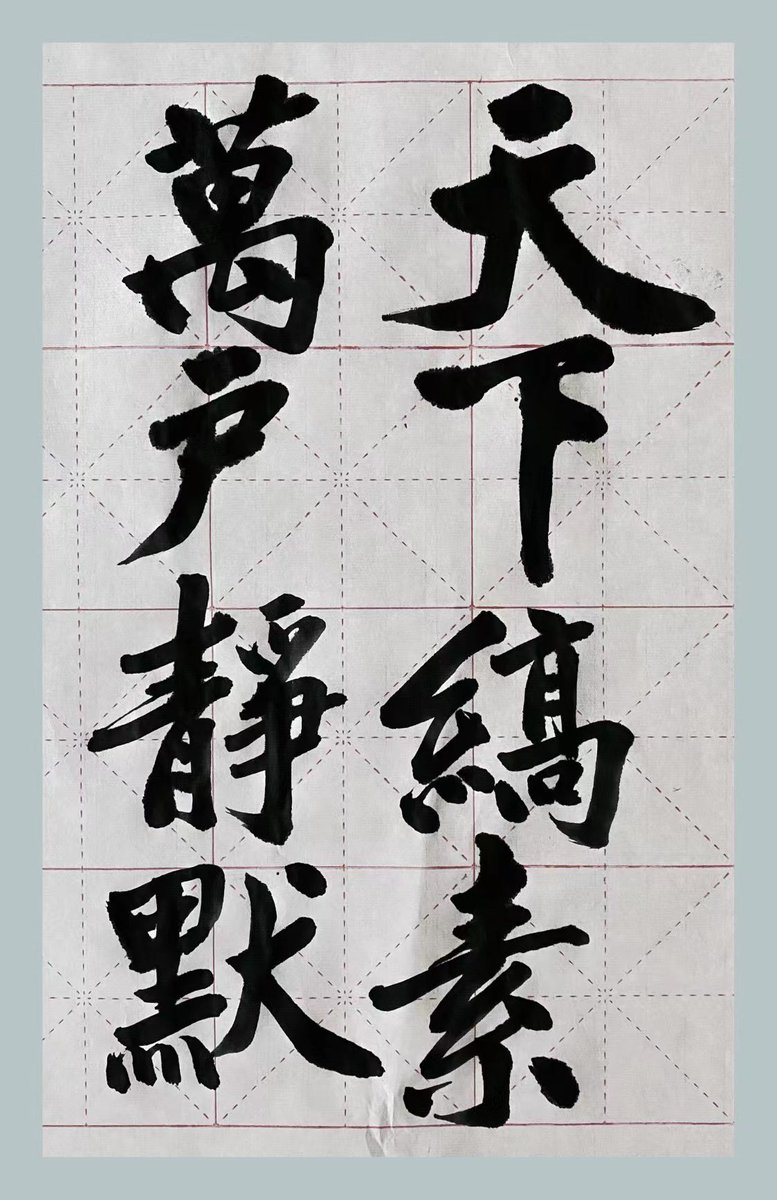 天下縞素
萬戶靜默